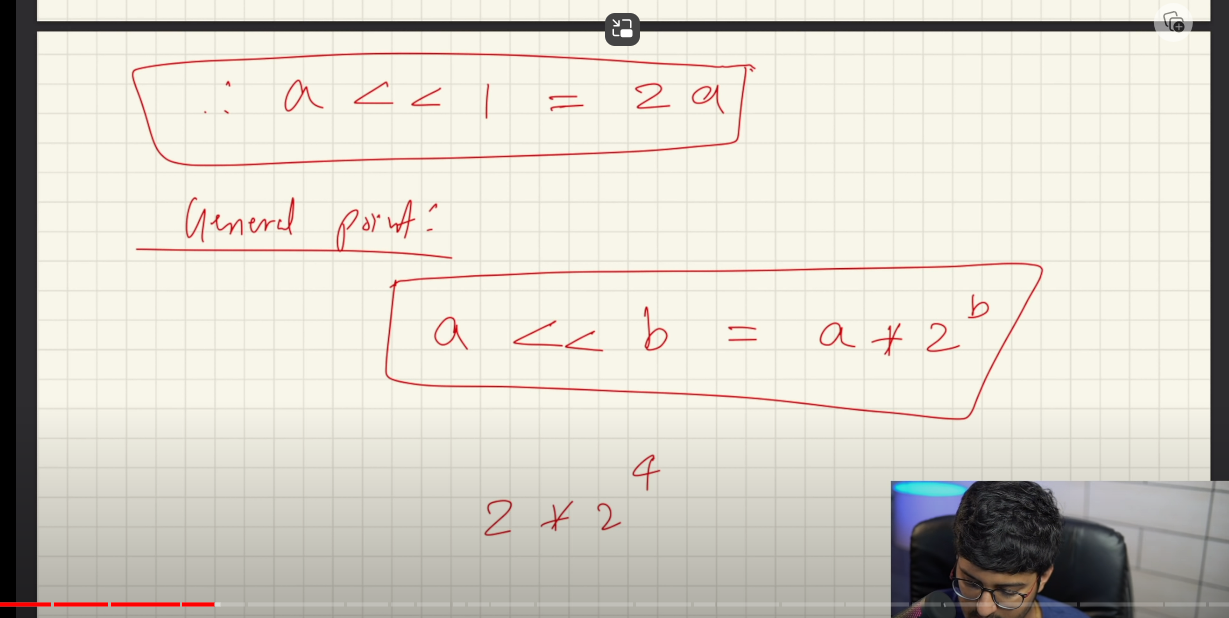 ∴ a << 1 = 2a
General point:
a << b = a * 2^b
2 * 2^4